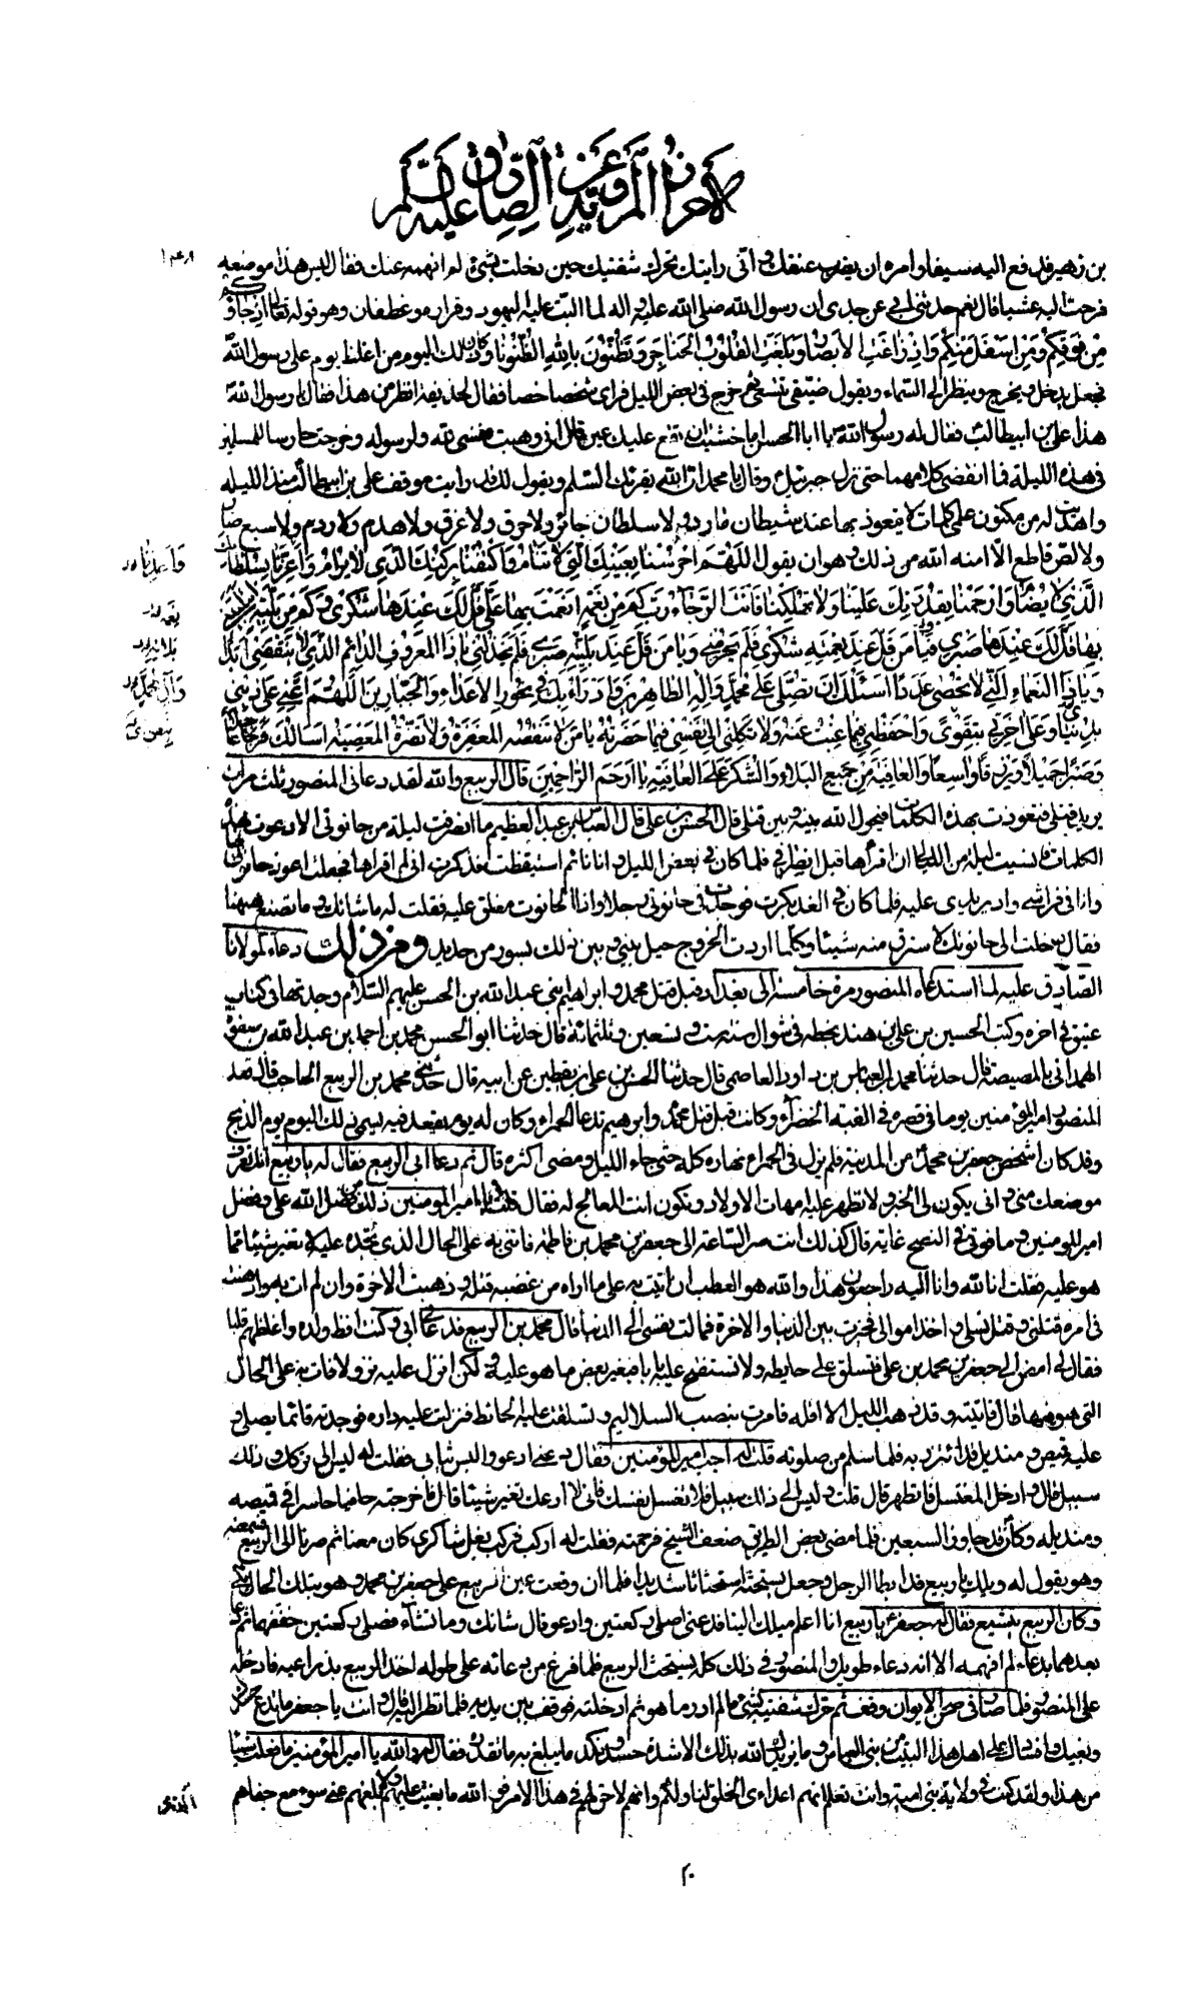 الاحراز المروية عن الصادق عليه السلم
بن زهير فدفع اليه سيفا وامره ان يضرب عنقك وانى رايتك تحرك شفتيك حين دخلت بشئ لم افهمه عنك فقال ليس هذا موضعه
فرحت اليه عشيا قال نعم حدثنى ابى عن جدى ان رسول الله صلى الله عليه واله لما البت عليه اليهود وفزارة وغطفان وهو قوله تعالى اذ جاؤكم
من فوقكم ومن اسفل منكم واذ زاغت الابصار وبلغت القلوب الحناجر وتظنون بالله الظنونا وكان ذلك اليوم من اغلظ يوم على رسول الله
فجعل يدخل ويخرج وينظر الى السماء ويقول ضيقى تتسعى ثم خرج فى بعض الليل فراى شخصا فقال لحذيفة انظر من هذا فقال يا رسول الله
هذا على بن ابيطالب فقال له رسول الله يا ابا الحسن اما خشيت ان تقع عليك عين قال انى وهبت نفسى لله ولرسوله وخرجت حارسا للمسلمين
فى هذه الليلة فما انقضى كلامهما حتى نزل جبرئيل وقال يا محمد ان الله يقرئك السلم ويقول لك قد رايت موقف على بن ابيطالب منذ الليلة
واهديت له من مكنون علمى كلمات لا يتعوذ بها عند شيطان مارد ولا سلطان جائر ولا حرق ولا غرق ولا هدم ولا ردم ولا سبع ضار
ولا لص قاطع الا امنه الله من ذلك وهو ان يقول اللهم احرسنا بعينك التى لا تنام واكنفنا بركنك الذى لا يرام واعزنا بسلطانك
الذى لا يضام وارحمنا بقدرتك علينا ولا تهلكنا فانت الرجاء رب كم من نعمة انعمت بها على قل لك عندها شكرى وكم من بلية ابتليتنى
بها قل لك عندها صبرى فيا من قل عند نعمته شكرى فلم يحرمنى ويا من قل عند بليته صبرى فلم يخذلنى يا ذا المعروف الدائم الذى لا ينقضى ابدا
ويا ذا النعماء التى لا تحصى عددا اسئلك ان تصلى على محمد واله الطاهرين وادرء بك فى نحور الاعداء والجبارين اللهم اعنى على دينى
بدنياى وعلى اخرتى بتقوى واحفظنى فيما غبت عنه ولا تكلنى الى نفسى فيما حضرته يا من لا تنقصه المغفرة ولا تضره المعصية اسالك فرجا عاجلا
وصبرا جميلا ورزقا واسعا والعافية من جميع البلاء والشكر على العافية يا ارحم الراحمين قال الربيع والله لقد دعانى المنصور ثلث مرات
يريد قتلى فتعوذت بهذه الكلمات فيحول الله بينه وبين قتلى قال الحسن بن على قال العباس بن عبد العظيم ما انصرفت ليلة من حانوتى الا دعوت بهذه
الكلمات فانسيت ليلة من الليالى ان اقراها قبل انصرافى فلما كان فى بعض الليل وانا نائم استيقظت فذكرت انى لم اقراها فجعلت اعوذ حانوتى بها
وانا فى فراشى وادير يدى عليه فلما كان فى الغد بكرت فوجدت فى حانوتى رجلا واذا الحانوت مغلق عليه فقلت له ما شانك وما تصنع ههنا
فقال دخلت الى حانوتك لاسرق منه شيئا وكلما اردت الخروج حيل بينى وبين ذلك بسور من حديد ومن ذلك دعاء لمولانا
الصادق عليه لما استدعاه المنصور مرة خامسة الى بغداد قبل قتل محمد وابراهيم ابنى عبد الله بن الحسن عليهم السلام وجدتها فى كتاب
عتيق فى اخره وكتب الحسين بن على بن هند بخطه فى شوال سنة ست وتسعين وثلثمائة قال حدثنا ابو الحسن محمد بن احمد بن عبد الله بن صفوة
الهمدانى بالمصيصة قال حدثنا محمد بن العباس بن داود العاصمى قال حدثنا الحسن بن على بن يقطين عن ابيه قال حدثنى محمد بن الربيع الحاجب قال قعد
المنصور امير المؤمنين يوما فى قصره فى القبة الخضراء وكانت قبل قتل محمد وابرهيم تدعى الحمراء وكان له يوم يقعد فيه يسمى ذلك اليوم يوم الذبح
وقد كان اشخص جعفر بن محمد من المدينة فلم يزل فى الحمراء نهاره كله حتى جاء الليل ومضى اكثره قال ثم دعا ابى الربيع فقال له يا ربيع انك تعرف
موضعك منى وانى يكون لى الخبر ولا تظهر عليه امهات الاولاد وتكون انت المعالج له فقال قلت يا امير المؤمنين ذلك من فضل الله على وفضل
امير المؤمنين وما فوقى فى النصح غاية قال كذلك انت سر الساعة الى جعفر بن محمد بن فاطمة فائتنى به على الحال الذى تجده عليه لا تغير شيئا مما
هو عليه فقلت انا لله وانا اليه راجعون هذا والله هو العطب ان اتيت به على ما اراه من غضبه قتله وذهبت الاخرة وان لم ات به وادهنت
فى امره قتلنى وقتل نسلى واخذ اموالى فخيرت بين الدنيا والاخرة فمالت نفسى الى الدنيا قال محمد بن الربيع فدعانى ابى وكنت افظ ولده واغلظهم قلبا
فقال لى امض الى جعفر بن محمد بن على فتسلق على حايطه ولا تستفتح عليه بابا فيغير بعض ما هو عليه ولكن انزل عليه نزولا فات به على الحال
التى هو فيها قال فاتيته وقد ذهب الليل الا اقله فامرت بنصب السلاليم وتسلقت عليه الحائط فنزلت عليه داره فوجدته قائما يصلى و
عليه قميص ومنديل قد ائتزر به فلما سلم من صلوته قلت له اجب امير المؤمنين فقال دعنى ادعو والبس ثيابى فقلت له ليس الى تركك وذلك
سبيل قال وادخل المغتسل فاتطهر قال قلت وليس الى ذلك سبيل فلا تغسل نفسك فانى لا ادعك تغير شيئا قال فاخرجته حافيا حاسرا فى قميصه
ومنديله وكان قد جاوز السبعين فلما مضى بعض الطريق ضعف الشيخ فرحمته فقلت له اركب فركب بغل شاكرى كان معنا ثم صرنا الى الربيع فسمعته
وهو يقول له ويلك يا ربيع قد ابطا الرجل وجعل يستحثه استحثاثا شديدا فلما ان وقعت عين الربيع على جعفر بن محمد وهو بتلك الحال بكى
وكان الربيع يتشيع فقال له جعفر يا ربيع انا اعلم ميلك الينا فدعنى اصلى ركعتين وادعو قال شانك وما تشاء فصلى ركعتين خففهما ثم دعا
بعدهما بدعاء لم افهمه الا انه دعاء طويل والمنصور فى ذلك كله يستحث الربيع فلما فرغ من دعائه على طوله اخذ الربيع بذراعيه فادخله
على المنصور فلما صار فى صحن الايوان وقف ثم حرك شفتيه بشئ ما لم ادر ما هو ثم ادخلته فوقف بين يديه فلما نظر اليه قال وانت يا جعفر ما تدع حسدك
وبغيك وافسادك على اهل هذا البيت من بنى العباس وما يزيدك الله بذلك الا شدة حسد ونكد ما يبلغ به ما تقدره فقال له والله يا امير المؤمنين ما فعلت شيئا
من هذا ولقد كنت فى ولاية بنى امية وانت تعلم انهم اعداى الخلق لنا ولكم وانهم لا حق لهم فى هذا الامر فو الله ما بغيت عليهم ولا بلغهم عنى سوء مع جفاهم
٢٠